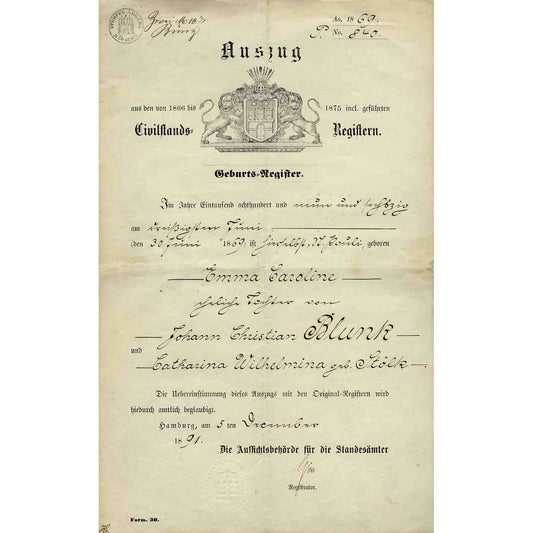 Ao. 1869.
P. No. 840.
Auszug
aus den von 1866 bis 1875 incl. geführten
Civilstands- Registern.
Geburts-Register.
Im Jahre Eintausend achthundert und neun und sechszig
am dreißigsten Juni
(den 30 Juni 1869 ist hieselbst, St. Pauli, geboren
Emma Caroline
eheliche Tochter von
Johann Christian Blunk
und Catharina Wilhelmina geb. Stölk
Die Uebereinstimmung dieses Auszugs mit den Original-Registern wird
hiedurch amtlich beglaubigt.
Hamburg, am 5 ten December
1891.
Die Aufsichtsbehörde für die Standesämter
Registrator.
Form. 30.